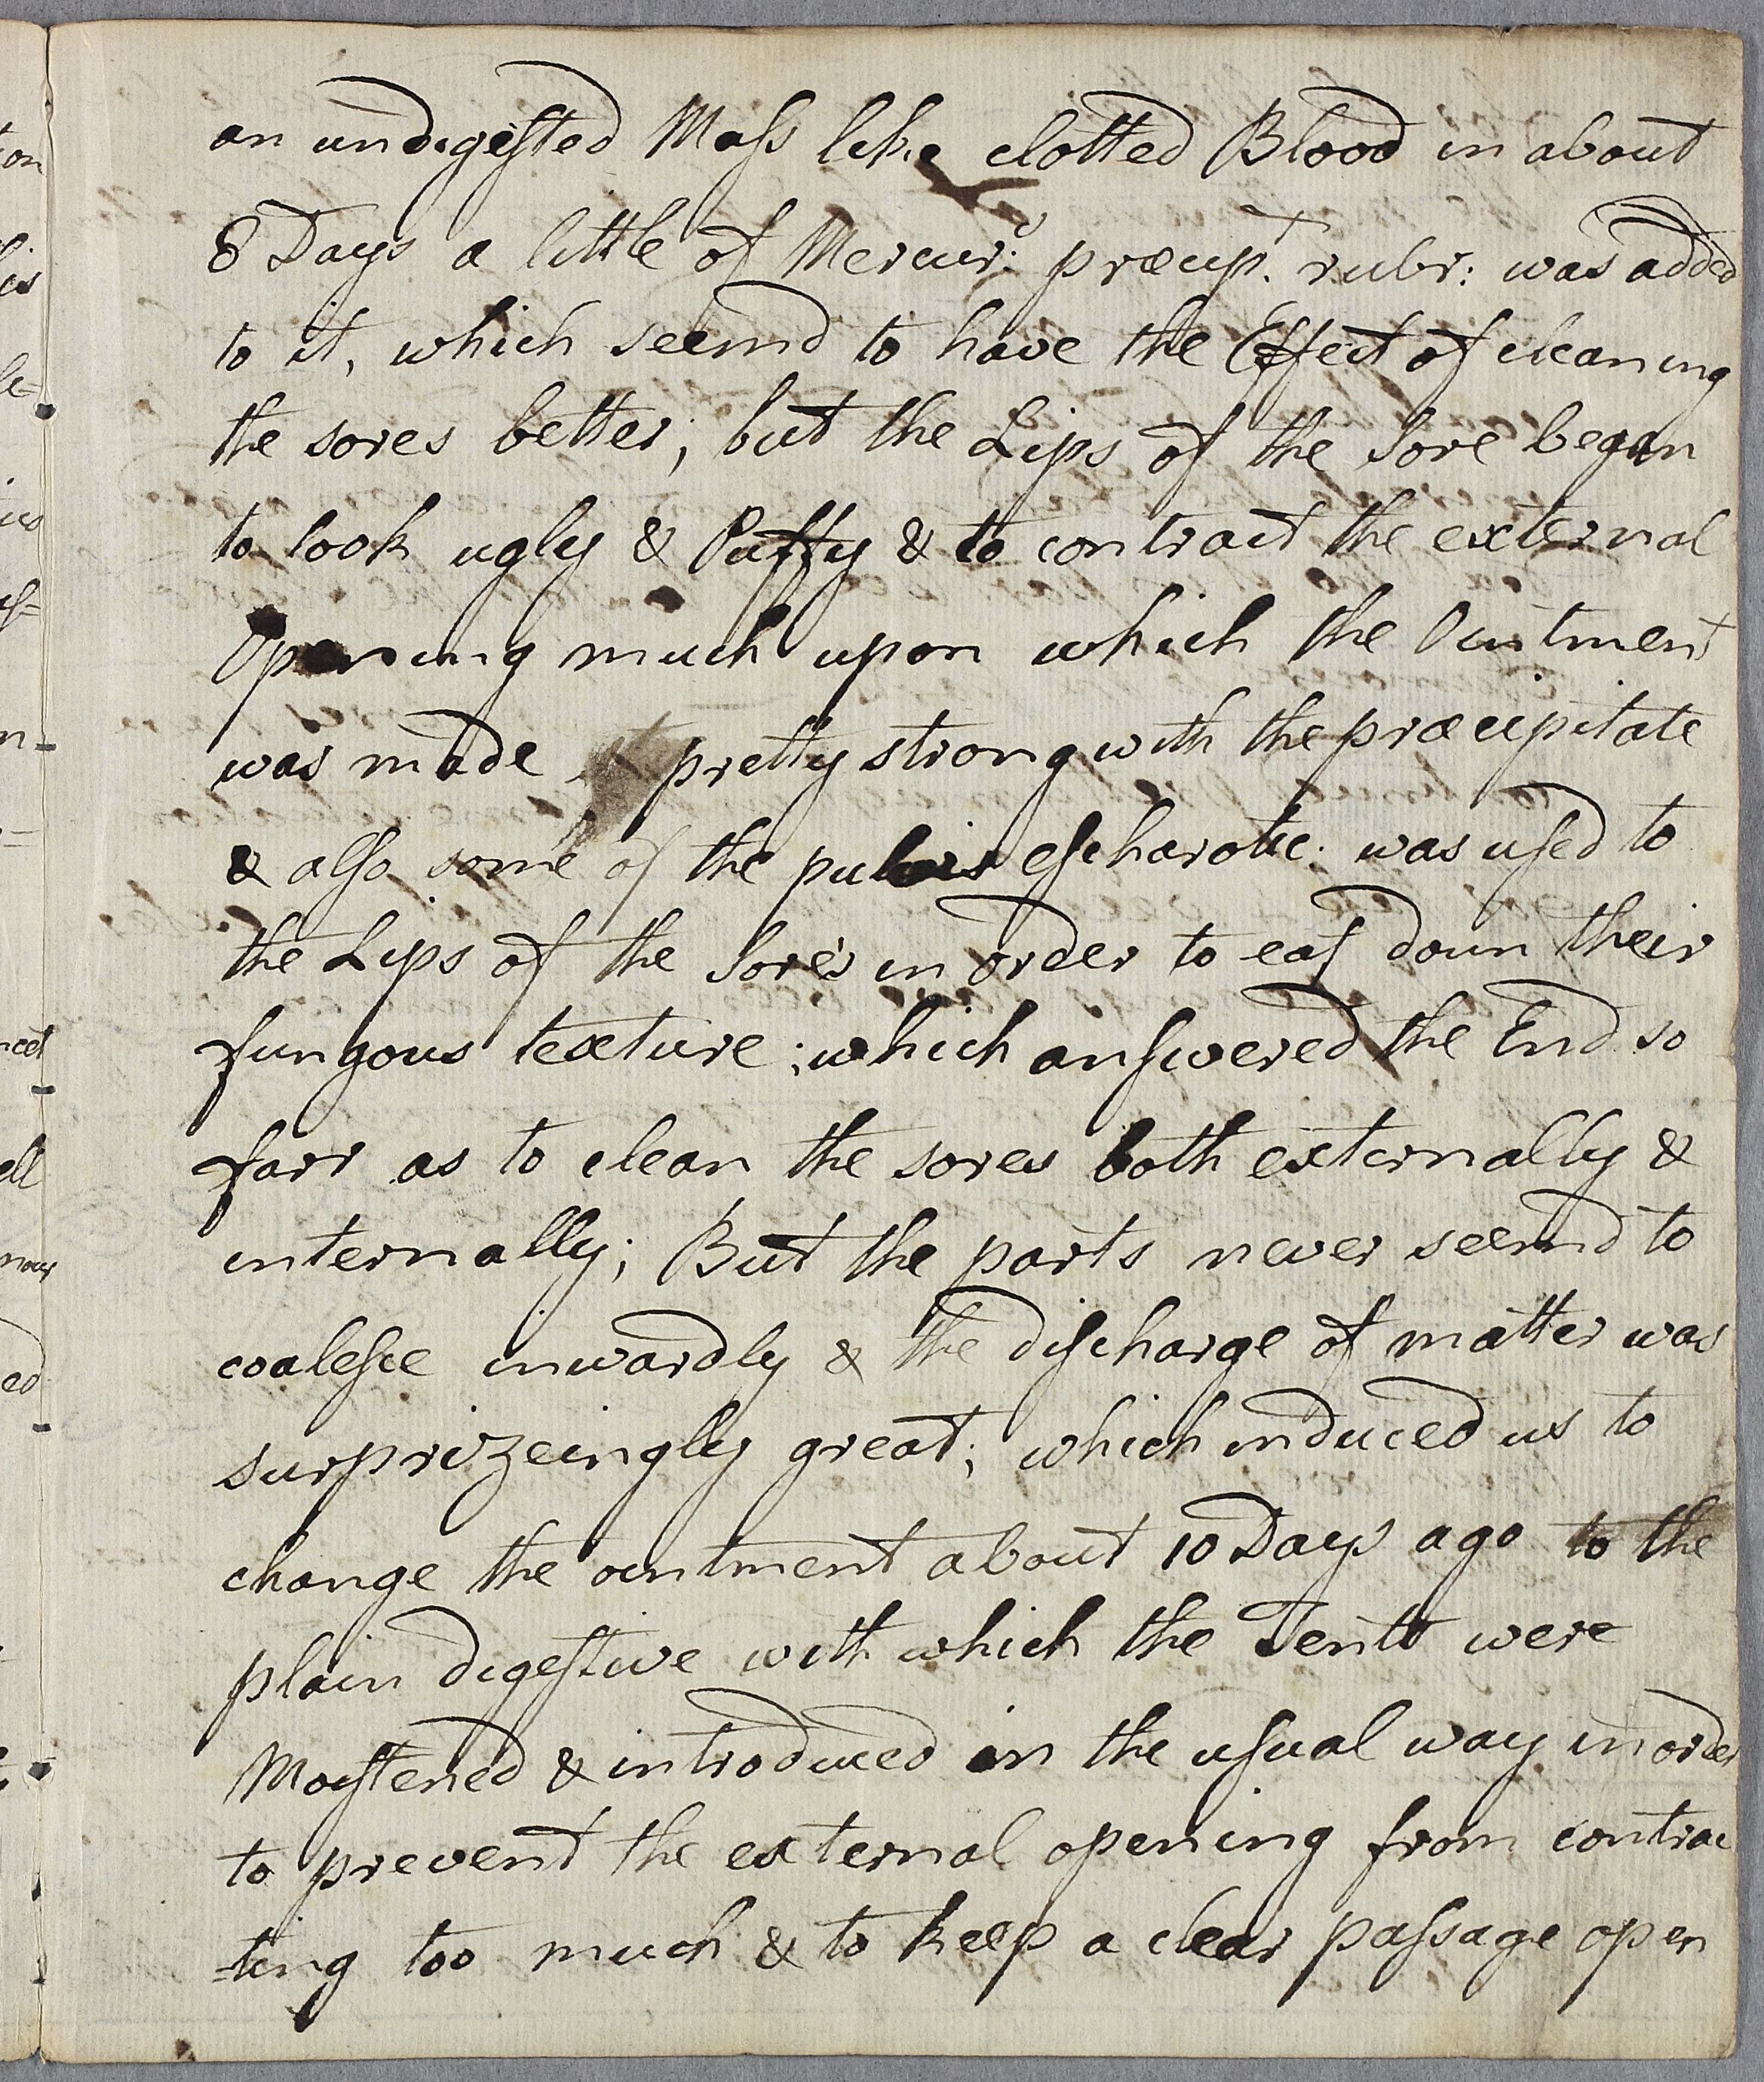 an undigeſted Maſs like clotted Blood in about
8 Days a little of Mercur: præcip. rubr: was added
to it, which seemd to have the Effect of cleaning
the sores better; but the Lips of the Sore began
to look ugly & Puffy & to contract the external
Opening much upon which the Ointment
was made pretty strong with the præcipitate
& alſo some of the pulvis eſcharotic: was uſed to
the Lips of the Sores in order to eat down their
fungous texture; which anſwered the End so
farr as to clean the sores both externally &
internally; But the parts never seemd to
coaleſce inwardly & the diſcharge of matter was
surprizeingly great; which induced us to
change the ointment about 10 Days ago to the
plain digeſtive with which the Tents were
Moiſtened & introduced in the uſual way in order
to prevent the external opening from contrac
=ting too much & to keep a clear paſsage open